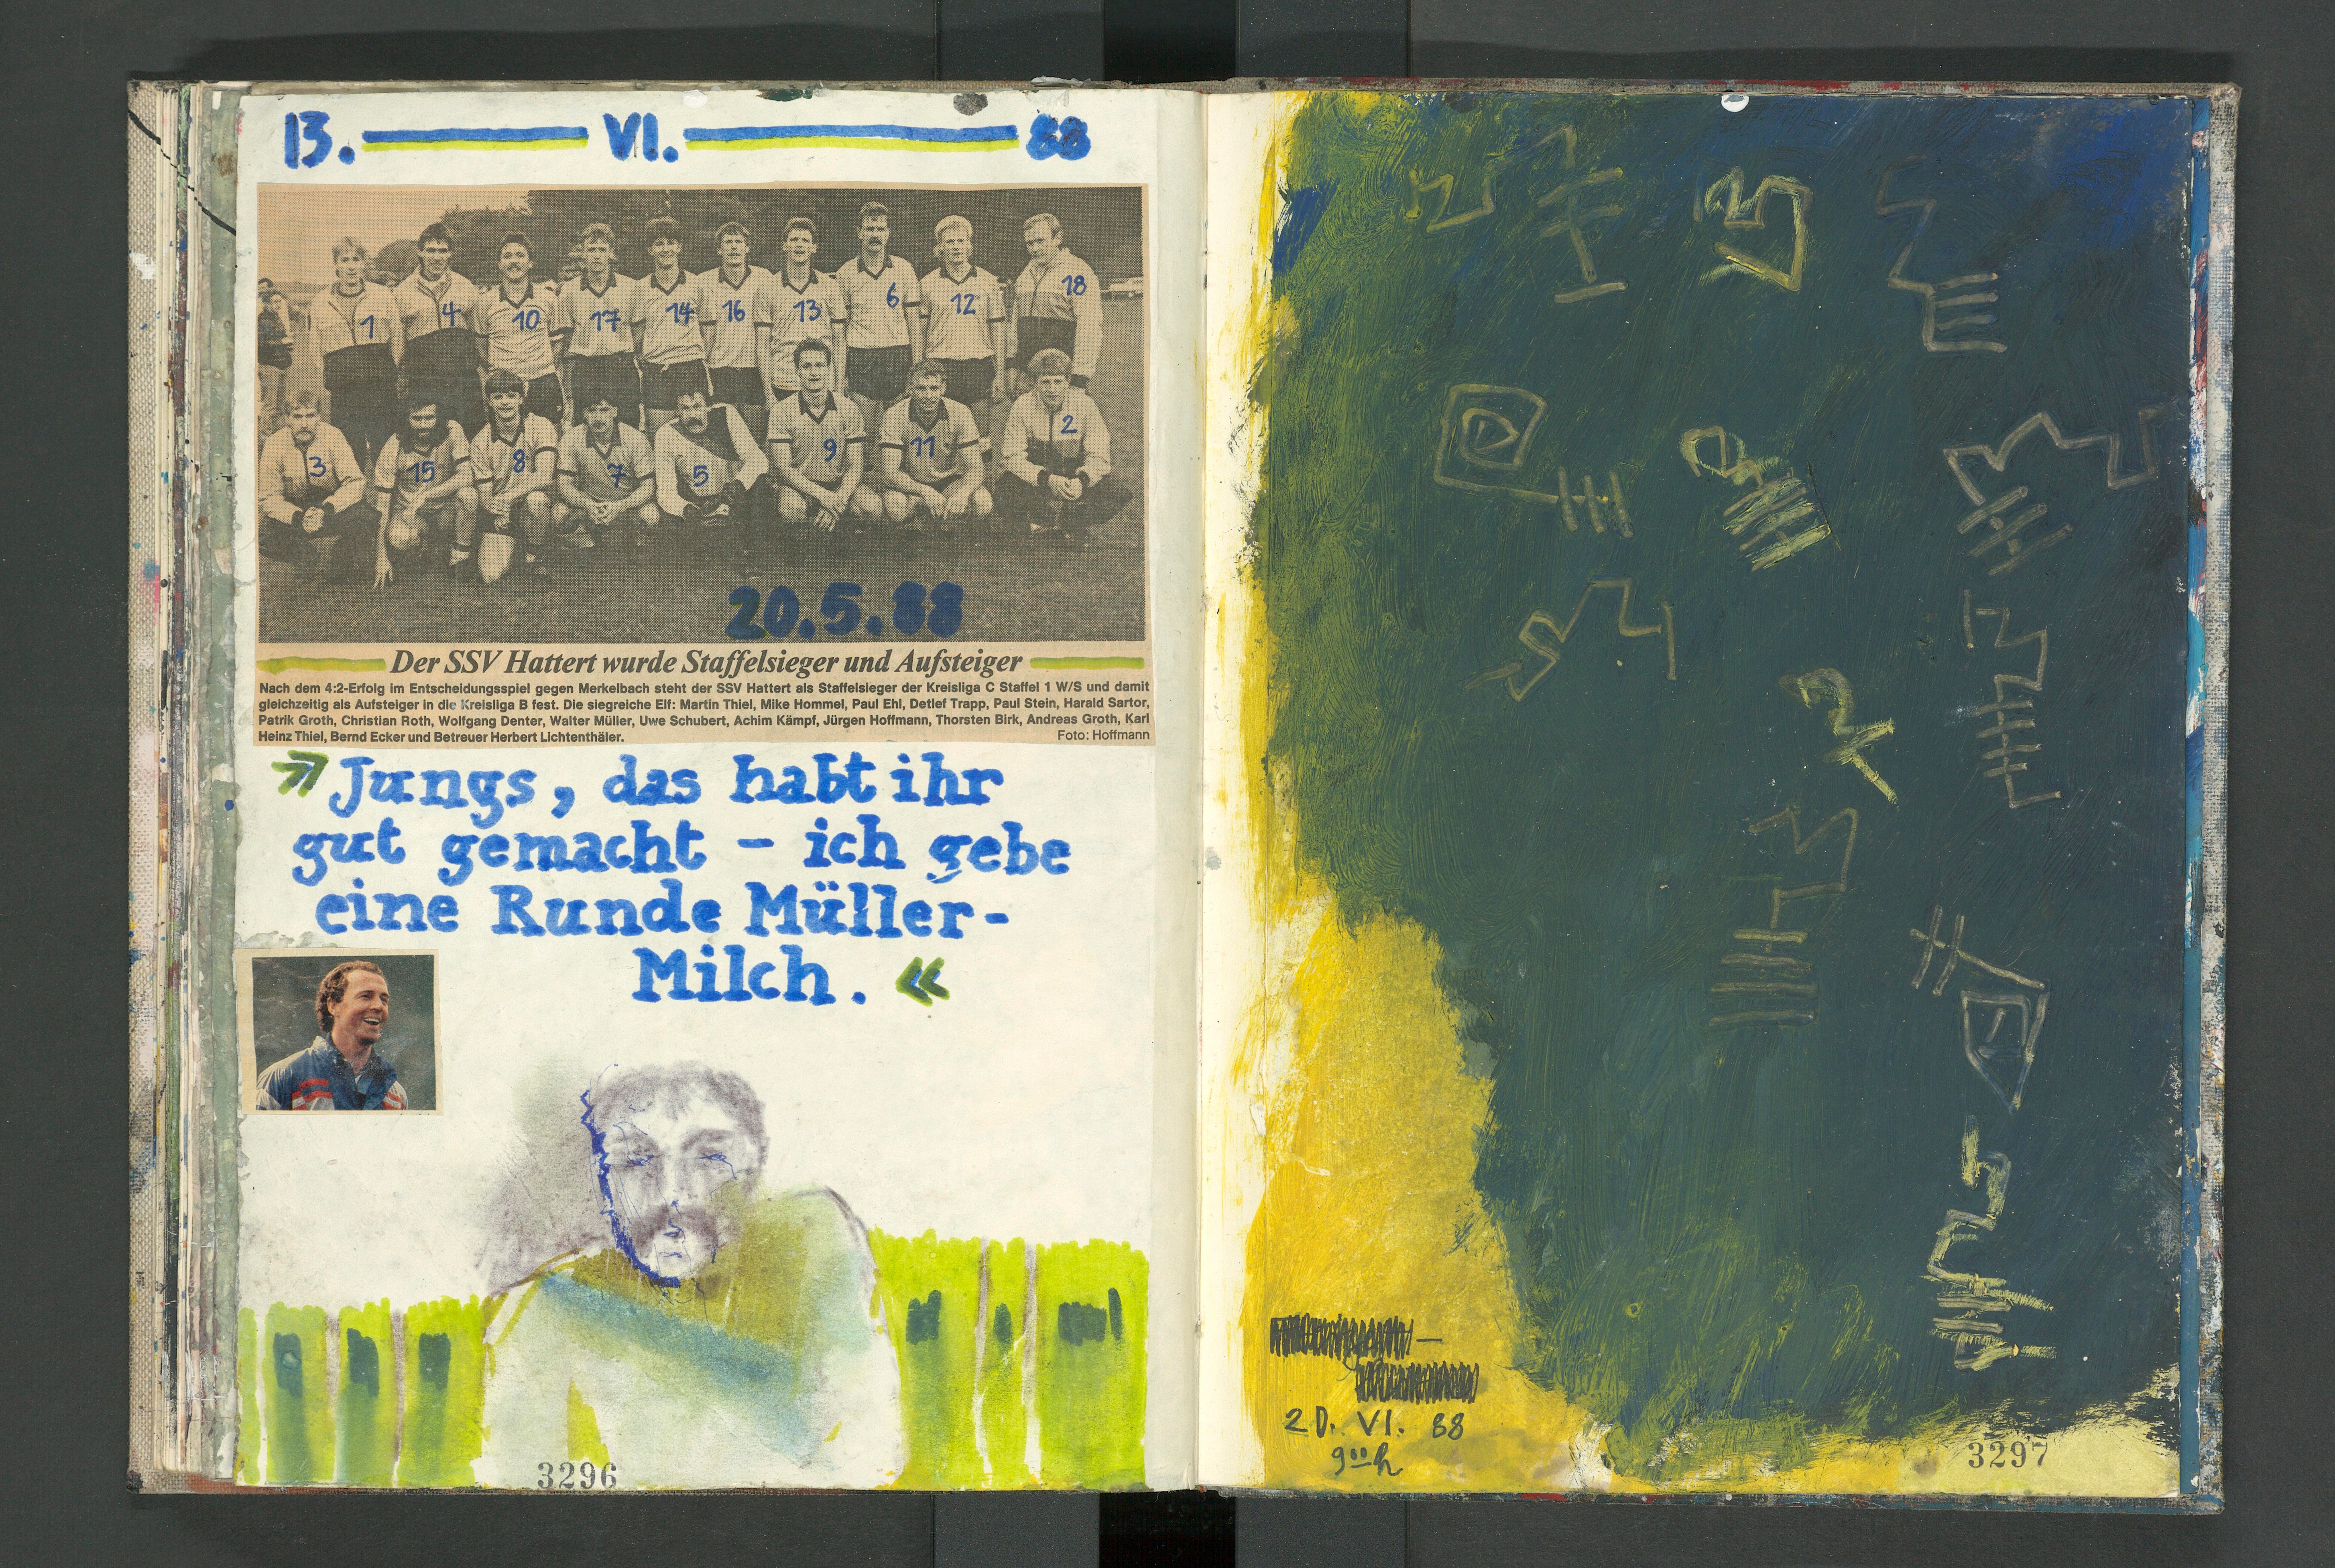 13. VI. 88
1 4 10 17 14 16 13 6 12 18
3 15 8 7 5 9 11 2
20.5.88
Der SSV Hattert wurde Staffelsieger und Aufsteiger
Nach dem 4:2-Erfolg im Entscheidungsspiel gegen Merkelbach steht der SSV Hattert als Staffelsieger der Kreisliga C Staffel 1 W/S und damit
gleichzeitig als Aufsteiger in die Kreisliga B fest. Die siegreiche Elf: Martin Thiel, Mike Hommel, Paul Ehl, Detlef Trapp, Paul Stein, Harald Sartor,
Patrik Groth, Christian Roth, Wolfgang Denter, Walter Müller, Uwe Schubert, Achim Kämpf, Jürgen Hoffmann, Thorsten Birk, Andreas Groth, Karl
Heinz Thiel, Bernd Ecker und Betreuer Herbert Lichtenthäler. Foto: Hoffmann
»Jungs, das habt ihr
gut gemacht – ich gebe
eine Runde Müller-
Milch. «
3296
20. VI. 88
9⁰⁰ h
3297